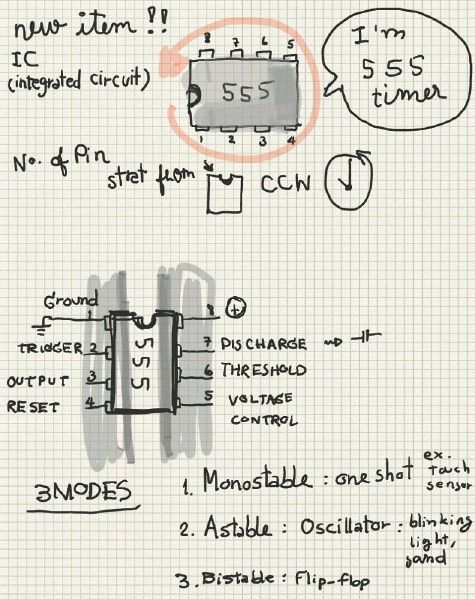 new item !!
IC
(integrated circuit)
8 7 6 5
555
1 2 3 4
I'm
555
timer
No. of Pin
strat from
CCW
Ground 1
8 +
TRIGGER 2
7 DISCHARGE
OUTPUT 3
6 THRESHOLD
RESET 4
5 VOLTAGE
CONTROL
555
3 MODES
1. Monostable : one shot ex. touch sensor
2. Astable : Oscillator : blinking
light,
sand
3. Bistable : Flip-flop